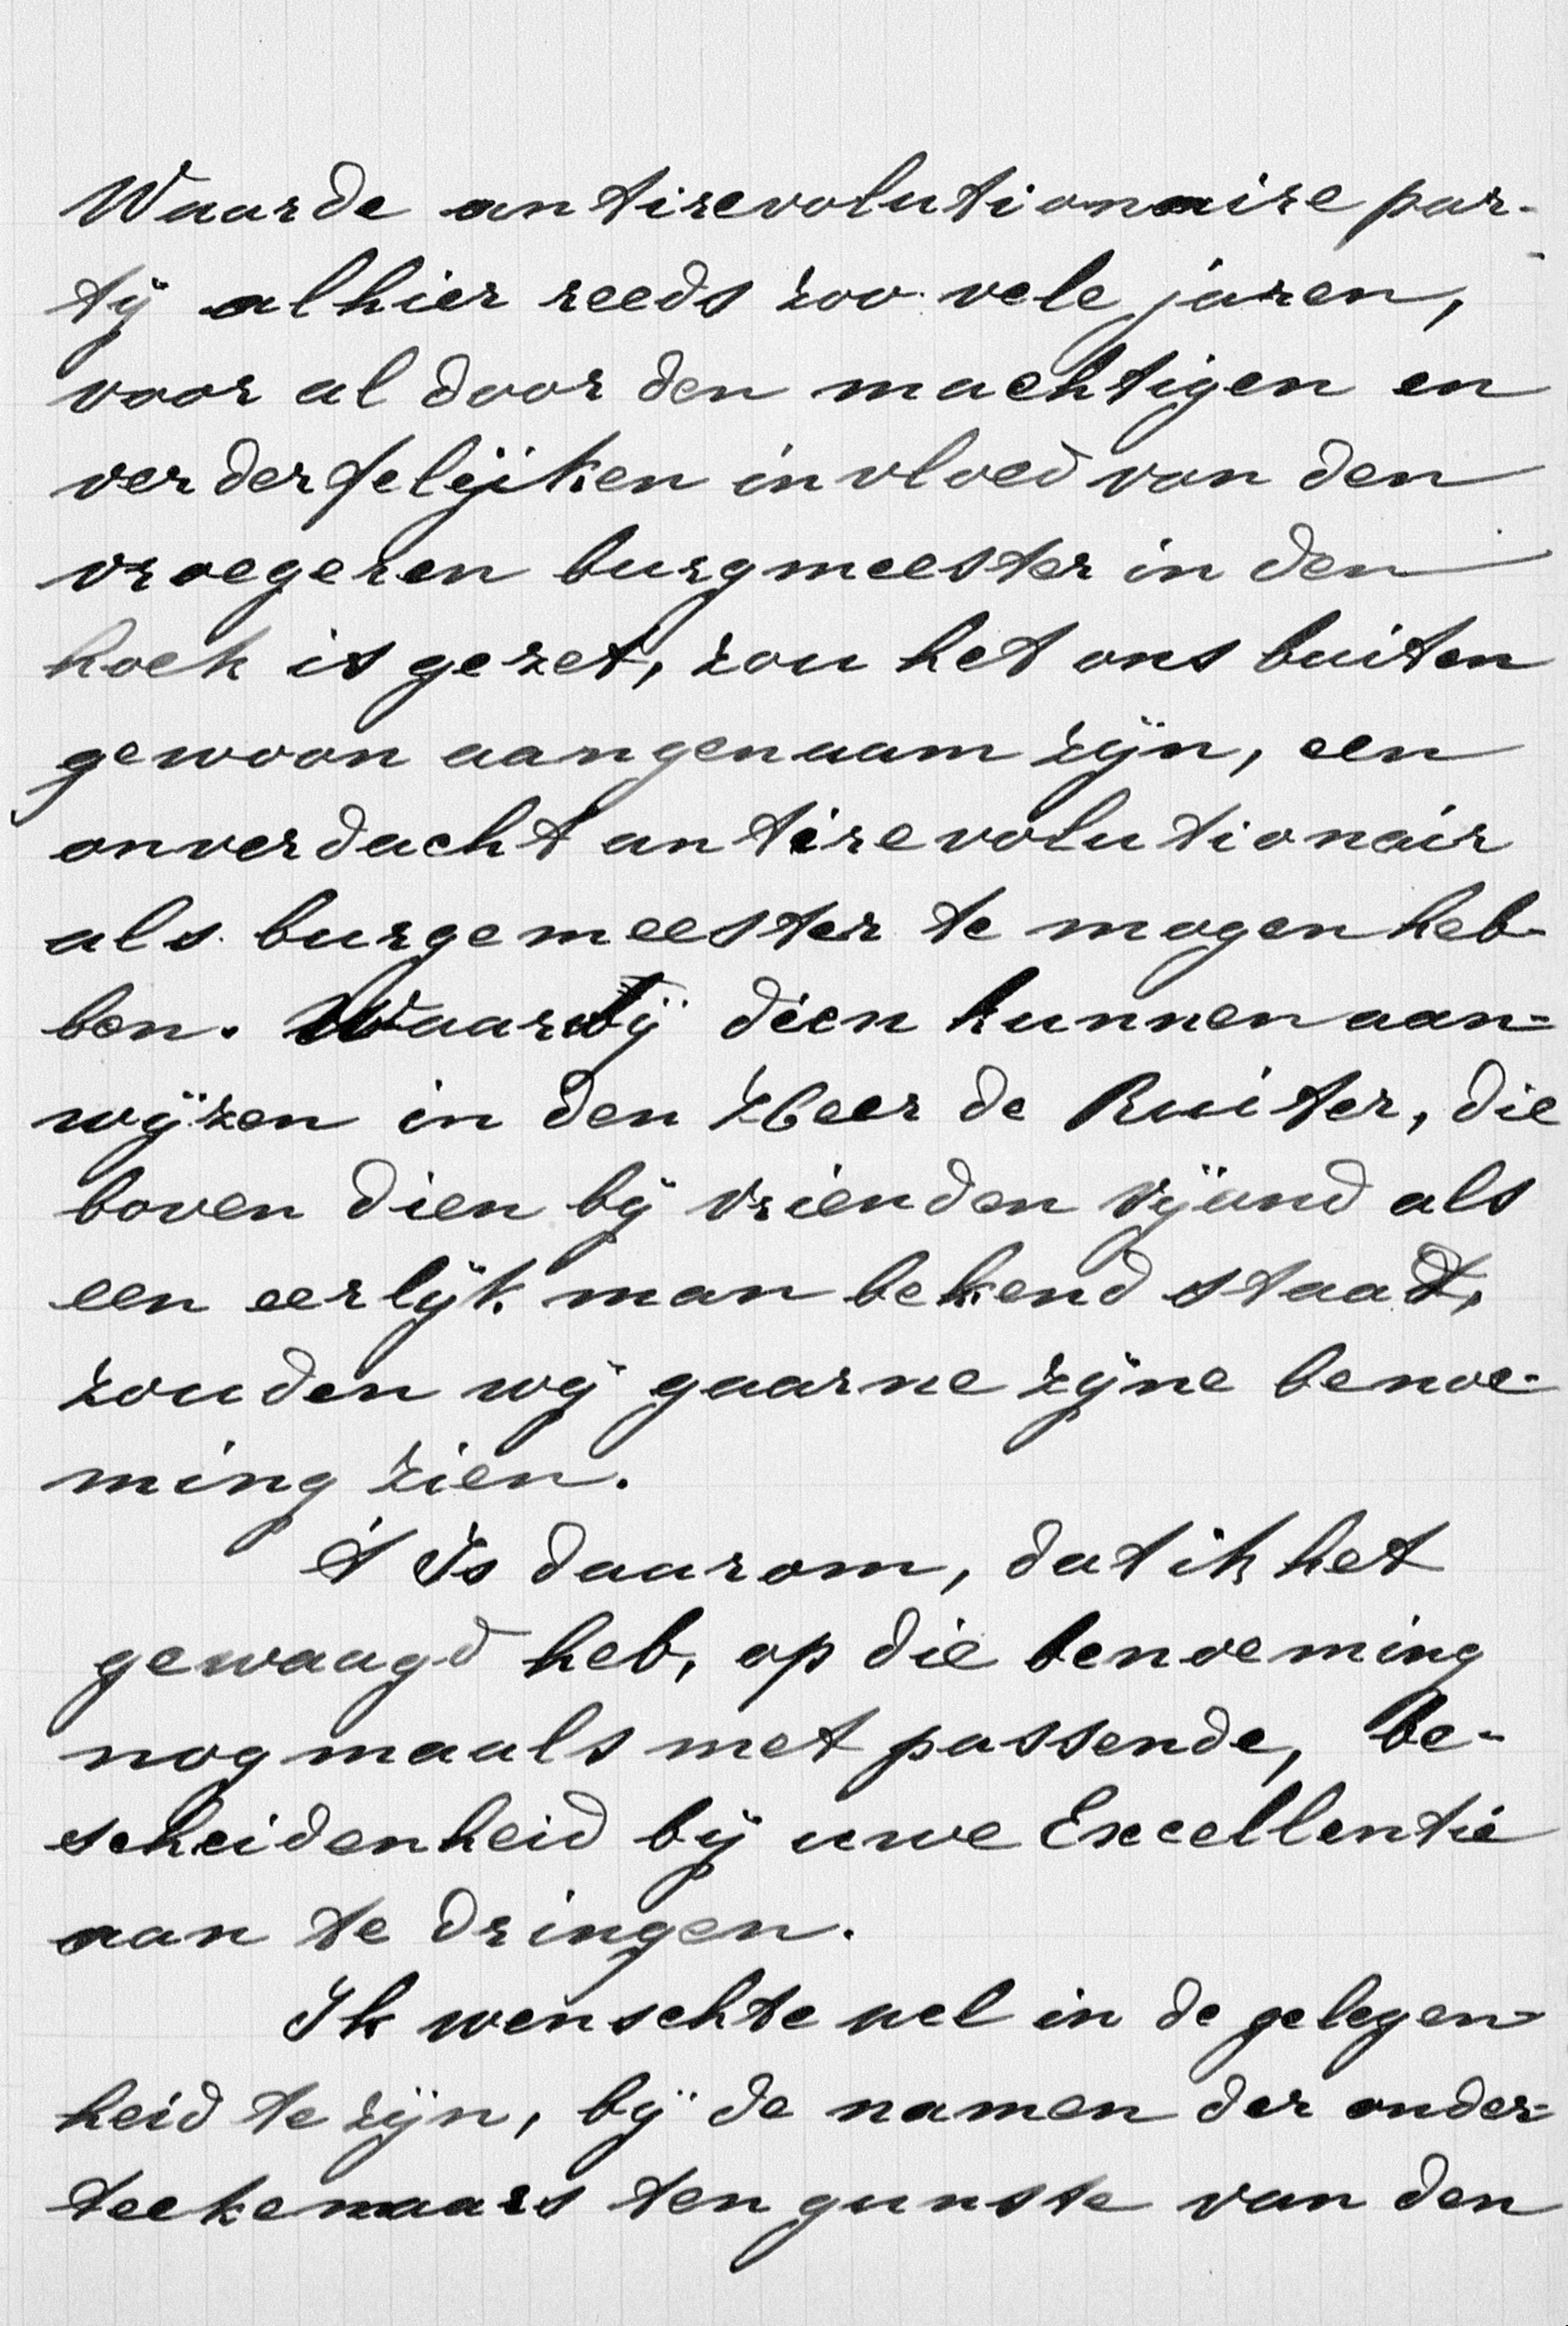 Waarde antirevolutionnaire par-
tij alhier reeds zoo vele jaren,
voor al door den machtigen en
verderfelijken invloed van den
vroegeren burgmeester in den
hoek is gezet, zou het ons buiten
gewoon aangenaam zijn, een
onverdacht antirevolutionair
als burgemeester te mogen heb-
ben. Waar wij dien kunnen aan-
wijzen in den Heer de Ruiter, die
boven dien bij vrienden vijand als
een eerlijk man bekend staat,
zouden wij gaarne zijne benoe-
ming zien.
't Is daarom, dat ik het
gewaagd heb, op die benoeming
nogmaals met passende, be-
scheidenheid bij uwe Excellentie
aan te dringen.
Ik wenschte wel in de gelegen-
heid te zijn, bij de namen der onder-
teekenaars ten gunste van den